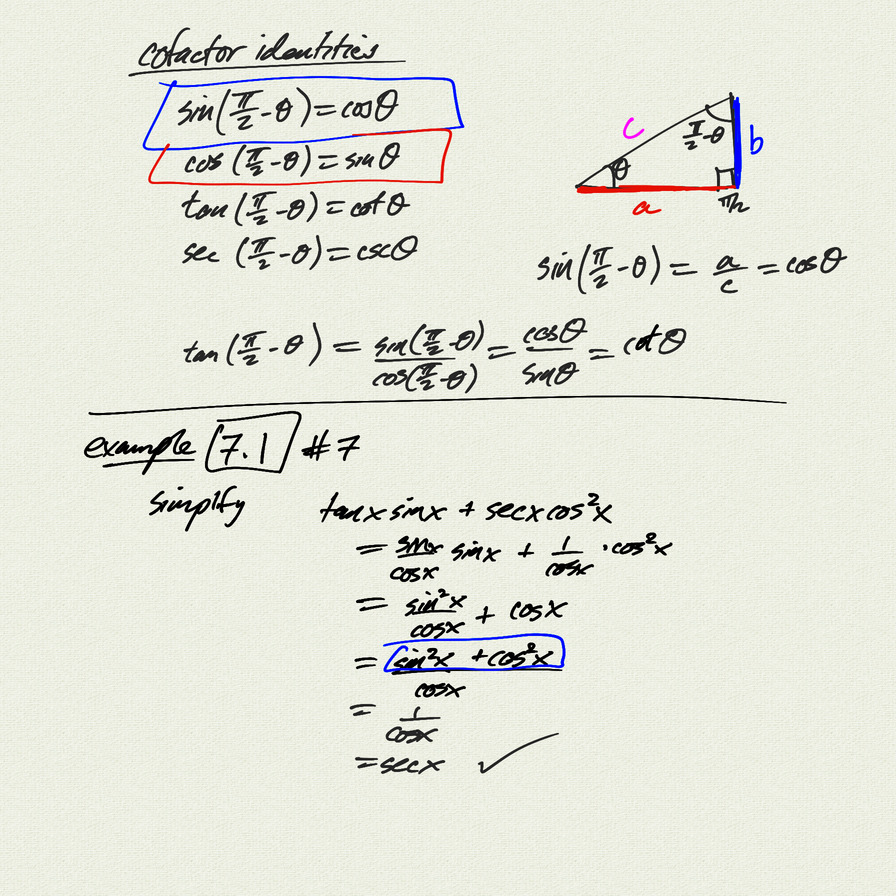 cofactor identities
sin(π/2 - θ) = cosθ
cos(π/2 - θ) = sinθ
tan(π/2 - θ) = cotθ
sec(π/2 - θ) = cscθ
c
π/2 - θ
b
θ
a
π/2
sin(π/2 - θ) = a/c = cosθ
tan(π/2 - θ) = sin(π/2 - θ)/cos(π/2 - θ) = cosθ/sinθ = cotθ
example 7.1 #7
simplify tanx sinx + secx cos²x
= sinx/cosx sinx + 1/cosx · cos²x
= sin²x/cosx + cosx
= sin²x + cos²x/cosx
= 1/cosx
= secx ✓